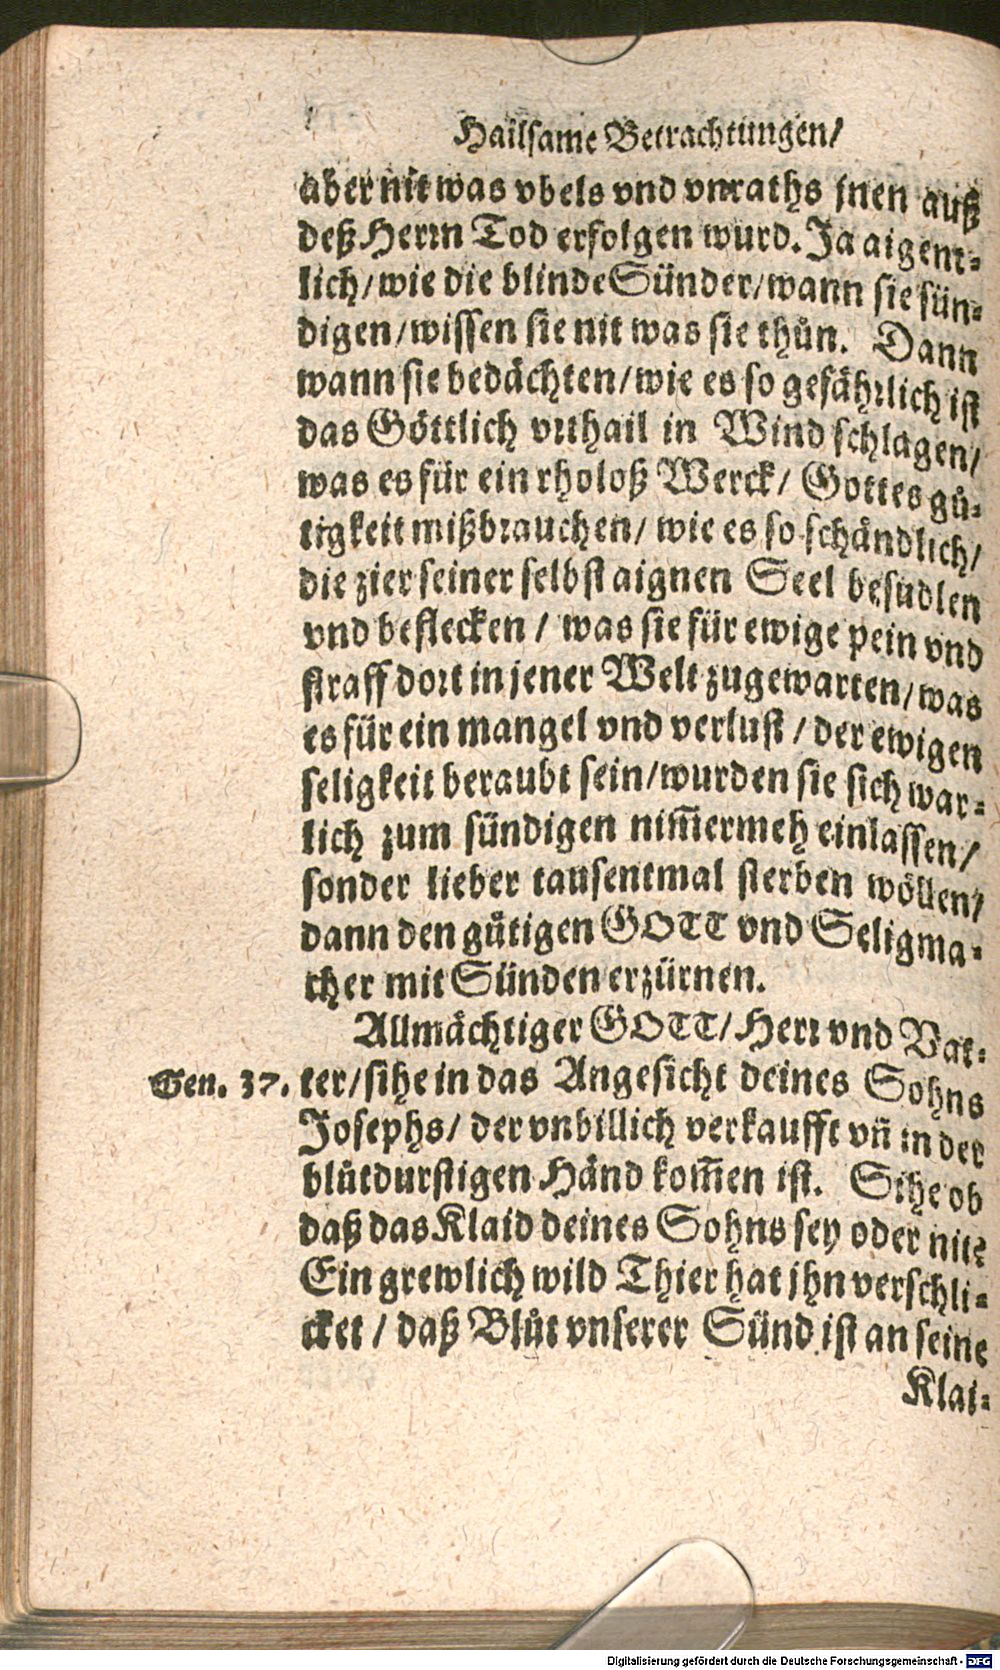 Hailsame Betrachtungen/
aber nit was vbels vnd vnraths jnen auß
deß Herrn Tod erfolgen wurd. Ja aigent-
lich/wie die blinde Sünder/wann sie sün-
digen/wissen sie nit was sie thůn. Dann
wann sie bedächten/wie es so gefährlich ist
das Göttlich vrthail in Wind schlagen/
was es für ein rholoß Werck/ Gottes gů-
tigkeit mißbrauchen/ wie es so schändlich/
die zier seiner selbst aignen Seel besudlen
vnd beflecken / was sie für ewige pein vnd
straff dort in jener Welt zugewarten/was
es für ein mangel vnd verlust / der ewigen
seligkeit beraubt sein/wurden sie sich war-
lich zum sündigen nim̃ermeh einlassen/
sonder lieber tausentmal sterben wöllen/
dann den gůtigen GOTT vnd Seligma-
cher mit Sünden erzürnen.
Allmächtiger GOTT/ Herr vnd Vat-
Gen. 37. ter/sihe in das Angesicht deines Sohns
Josephs/ der vnbillich verkaufft vñ in der
blůtdurstigen Händ kom̃en ist. Sihe ob
daß das Klaid deines Sohns sey oder nit?
Ein grewlich wild Thier hat jhn verschli-
cket / daß Blůt vnserer Sünd ist an seine
Klai-
Digitalisierung gefördert durch die Deutsche Forschungsgemeinschaft - DFG